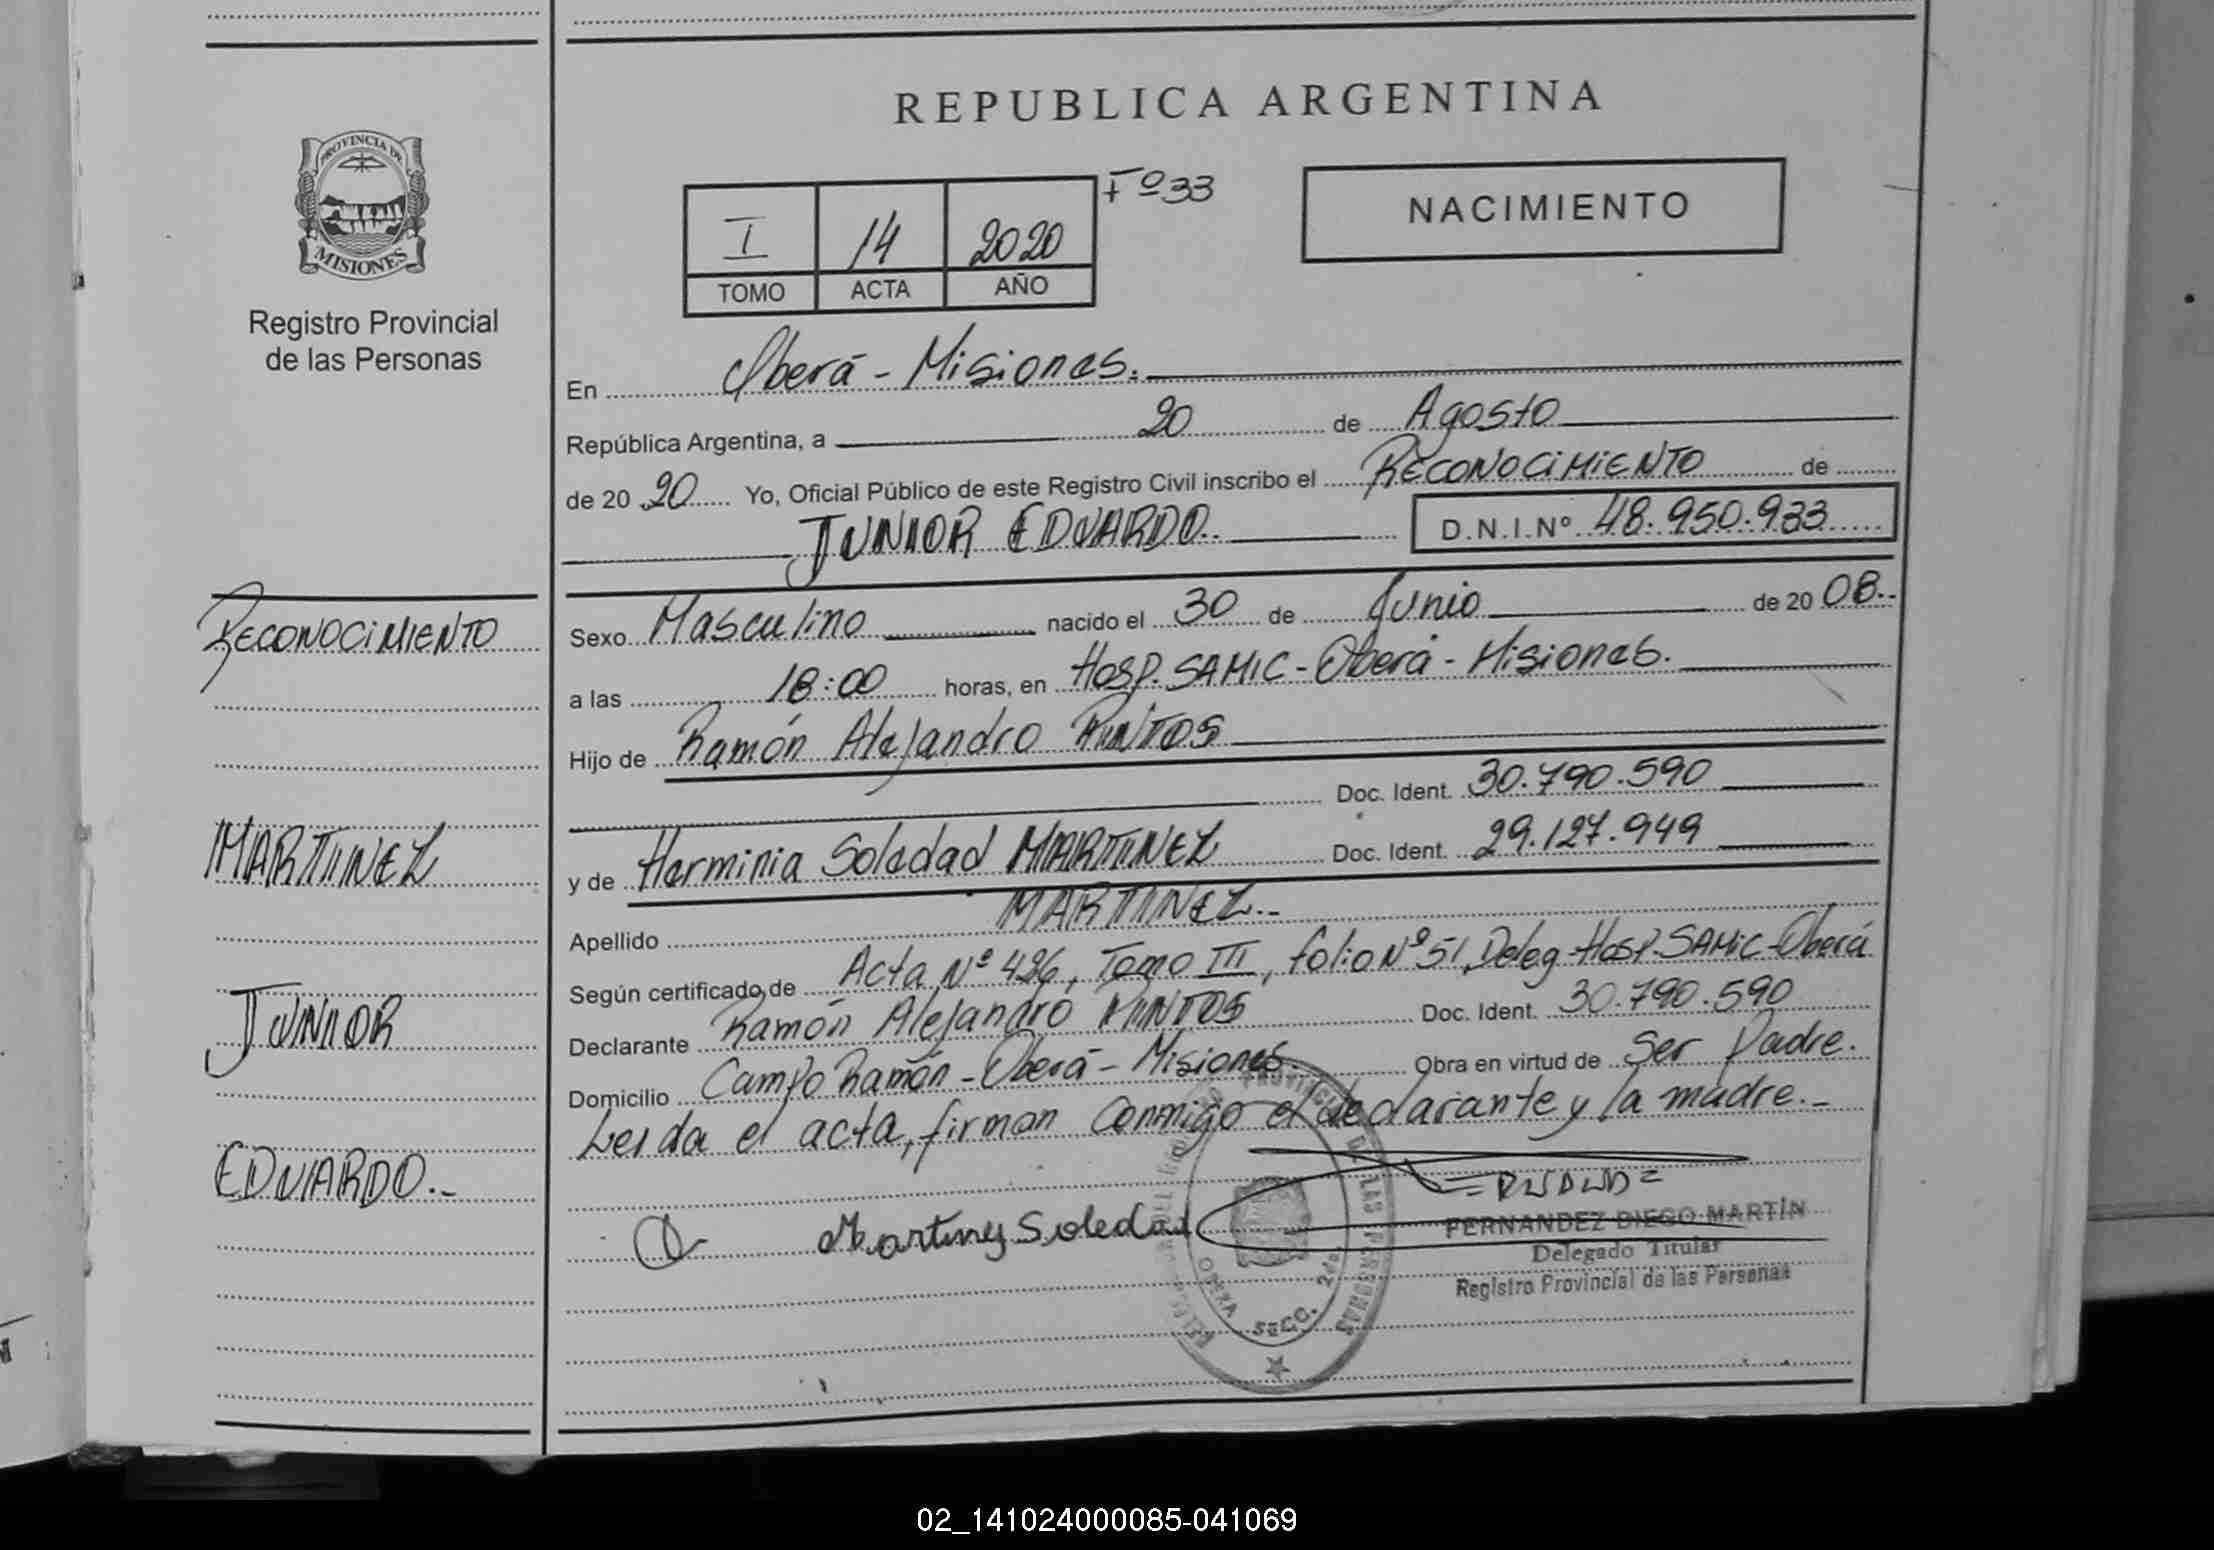 REPUBLICA ARGENTINA
PROVINCIA DE
MISIONES
Registro Provincial
de las Personas
I 14 2020 Fº 33
TOMO ACTA AÑO
NACIMIENTO
En Oberá - Misiones.
República Argentina, a 20 de Agosto
de 20 20 Yo, Oficial Público de este Registro Civil inscribo el RECONOCIMIENTO de
JUNIOR EDUARDO. D.N.I.Nº 48.950.933
RECONOCIMIENTO
Sexo Masculino nacido el 30 de Junio de 20 08.
a las 18:00 horas, en Hosp. SAMIC - Oberá - Misiones.
Hijo de Ramón Alejandro
Doc. Ident. 30.790.590
MARTINEZ
y de Herminia Soledad MARTINEZ Doc. Ident. 29.127.949
Apellido MARTINEZ.-
Según certificado de Acta Nº 426, Tomo III, folio Nº 51, Deleg. Hosp. SAMIC - Oberá
JUNIOR
Declarante Ramón Alejandro Doc. Ident. 30.790.590
Domicilio Campo Ramón - Oberá - Misiones. Obra en virtud de Ser Padre.
Leida el acta, firman conmigo el declarante y la madre.-
EDUARDO.-
Martinez Soledad
FERNANDEZ DIEGO MARTÍN
Delegado Titular
Registro Provincial de las Personas
PROVINCIAL DE LAS PERSONAS
OBERA SECC. 2da.
02_141024000085-041069